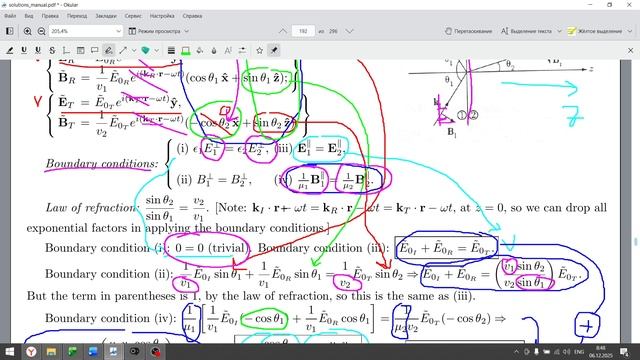 solutions_manual.pdf * – Okular
Файл Вид Переход Закладки Сервис Настройка Справка
205,4% 192 из 296 Режим просмотра Перетаскивание Выделение текста Жёлтое выделение
B̃_R = 1/v₁ Ẽ₀R e^{i(k_R·r−ωt)} (cos θ₁ x̂ + sin θ₁ ẑ);
Ẽ_T = Ẽ₀T e^{i(k_T·r−ωt)} ŷ,
B̃_T = 1/v₂ Ẽ₀T e^{i(k_T·r−ωt)} (−cos θ₂ x̂ + sin θ₂ ẑ);
θ₁ θ₂ z
① ② B₁ z
Boundary conditions: (i) ϵ₁E₁^⊥ = ϵ₂E₂^⊥, (iii) E₁^∥ = E₂^∥,
(ii) B₁^⊥ = B₂^⊥, (iv) 1/μ₁ B₁^∥ = 1/μ₂ B₂^∥.
Law of refraction: sin θ₂/sin θ₁ = v₂/v₁. [Note: k_I · r − ωt = k_R · r − ωt = k_T · r − ωt, at z = 0, so we can drop all
exponential factors in applying the boundary conditions.]
Boundary condition (i): 0 = 0 (trivial). Boundary condition (iii): Ẽ₀I + Ẽ₀R = Ẽ₀T.
Boundary condition (ii): 1/v₁ Ẽ₀I sin θ₁ + 1/v₁ Ẽ₀R sin θ₁ = 1/v₂ Ẽ₀T sin θ₂ ⇒ Ẽ₀I + Ẽ₀R = (v₁ sin θ₂/v₂ sin θ₁) Ẽ₀T.
But the term in parentheses is 1, by the law of refraction, so this is the same as (iii).
Boundary condition (iv): 1/μ₁ [1/v₁ Ẽ₀I (−cos θ₁) + 1/v₁ Ẽ₀R cos θ₁] = 1/μ₂v₂ Ẽ₀T (−cos θ₂) ⇒
+
8:48
06.12.2025